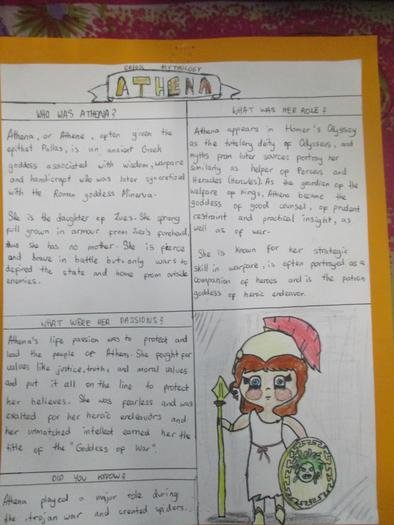 GREEK MYTHOLOGY
ATHENA
WHO WAS ATHENA?
Athena, or Athene, often given the
epithet Pallas, is an ancient Greek
goddess associated with wisdom, warfare
and handicraft who was later syncretized
with the Roman goddess Minerva.
She is the daughter of Zues. She sprang
full grown in armour from Zues's forehead,
thus she has no mother. She is fierce
and brave in battle but, only wars to
defined the state and home from outside
enemies.
WHAT WAS HER ROLE?
Athena appears in Homer's Odyssey
as the tutelary deity of Odysseus, and
myths from later sources portray her
similarly as helper of Perseus and
Heracles (Hercules). As the guardian of the
welfare of kings, Athena became the
goddess of good counsel, of prudent
restraint and practical insight, as
well as of war.
She is known for her strategic
skill in warfare, is often portrayed as a
companion of heroes and is the patron
goddess of heroic endeavor.
WHAT WERE HER PASSIONS?
Athena's life passion was to protect and
lead the people of Athens. She fought for
values like justice, truth, and moral values
and put it all on the line to protect
her believes. She was fearless and was
exalted for her heroic endeavors and
her unmatched intellect earned her the
title of the "Goddess of War".
DID YOU KNOW?
Athena played a major role during
the trojan war and created spiders.